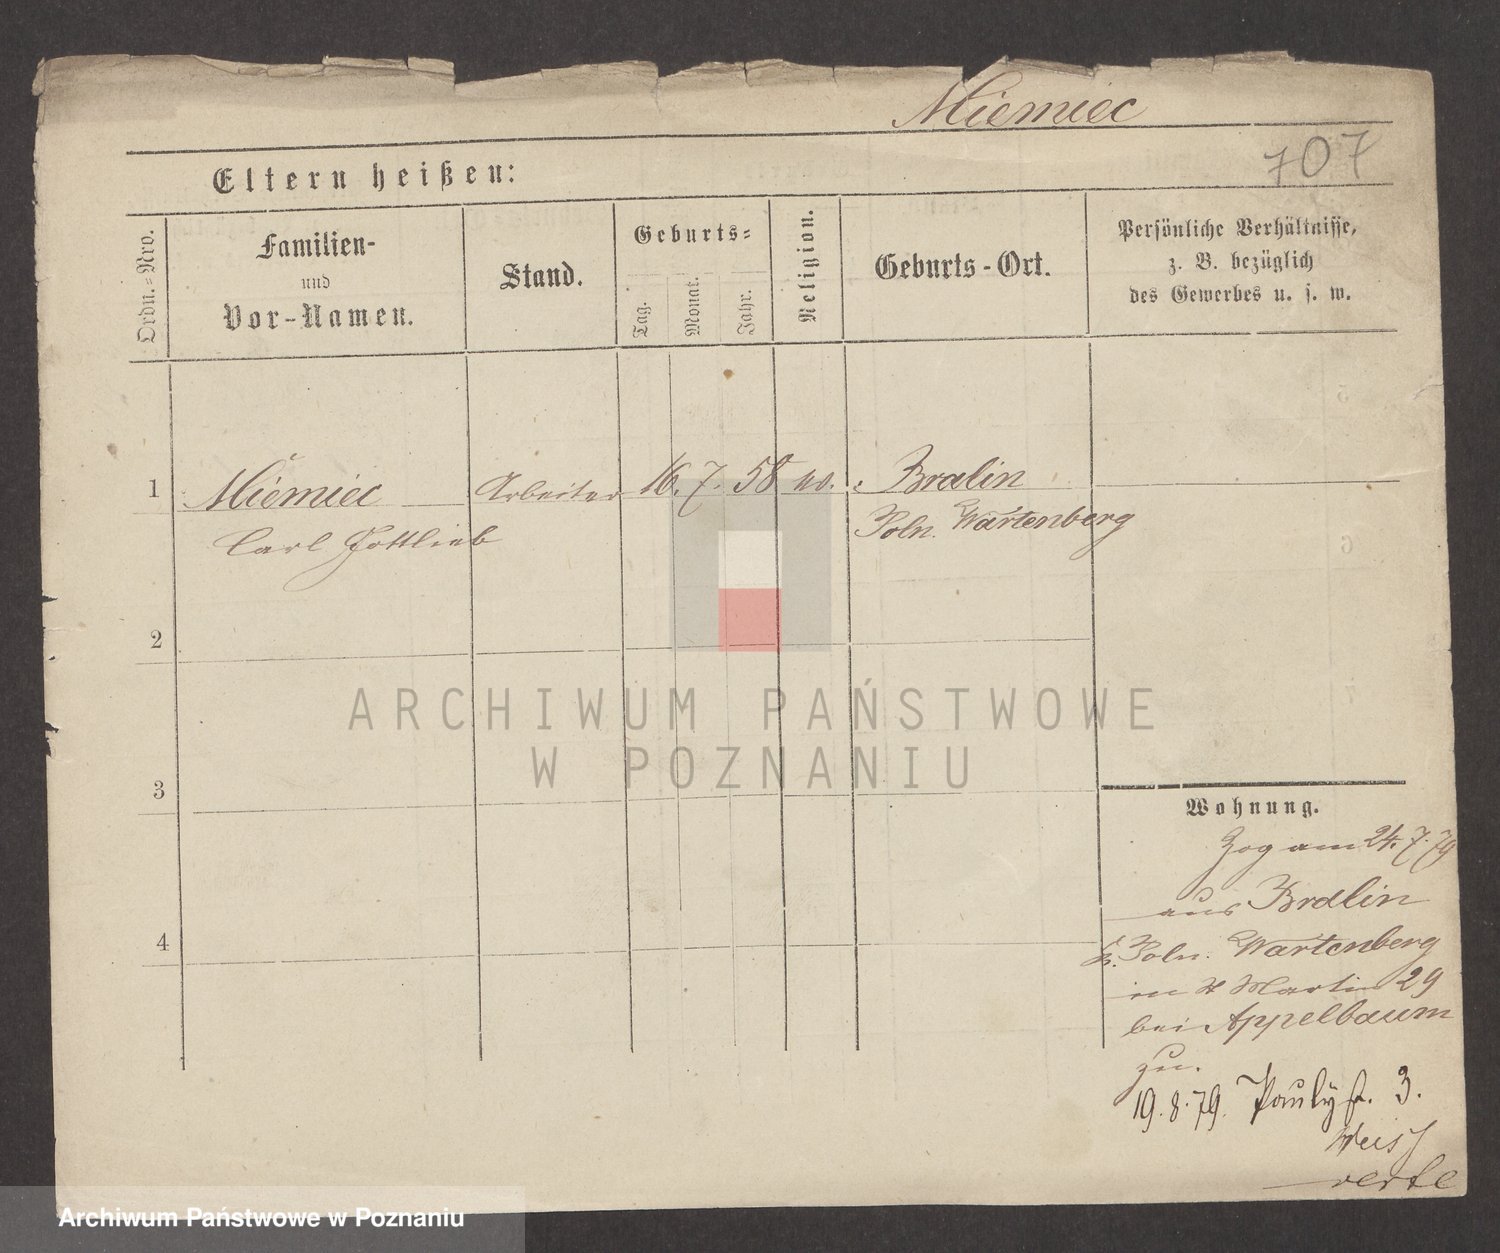 Miemiec
707
Eltern heißen:
Ordn.-Nro.
Familien-
und
Vor-Namen.
Stand.
Geburts-
Tag.
Monat.
Jahr.
Religion.
Geburts-Ort.
Persönliche Verhältnisse,
z. B. bezüglich
des Gewerbes u. s. w.
1 Miemiec Arbeiter 16. 7. 58 ev. Bralin
Carl Gottlieb Poln. Wartenberg
2
3
4
Wohnung.
Zog am 24.7.79
aus Bralin
K. Poln. Wartenberg
in St Martin 29
bei Appelbaum
zu.
19.8.79. Paulyst. 3.
Weiss
verte
ARCHIWUM PAŃSTWOWE
W POZNANIU
Archiwum Państwowe w Poznaniu